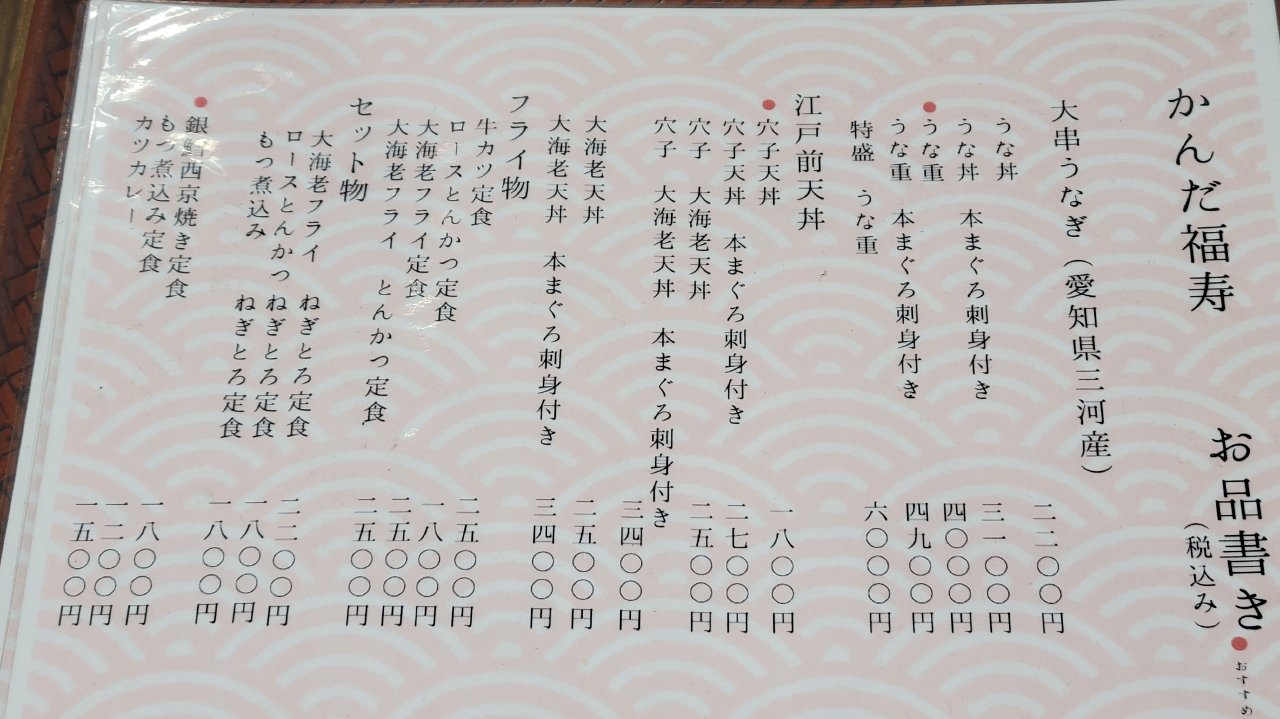 かんだ福寿 お品書き
(税込み)
●おすすめ
大串うなぎ(愛知県三河産)
うな丼 二二〇〇円
うな丼 本まぐろ刺身付き 三一〇〇円
●うな重 四〇〇〇円
うな重 本まぐろ刺身付き 四九〇〇円
特盛 うな重 六〇〇〇円
江戸前天丼
●穴子天丼 一八〇〇円
穴子天丼 本まぐろ刺身付き 二七〇〇円
穴子 大海老天丼 二五〇〇円
穴子 大海老天丼 本まぐろ刺身付き 三四〇〇円
大海老天丼 二五〇〇円
大海老天丼 本まぐろ刺身付き 三四〇〇円
フライ物
牛カツ定食 二五〇〇円
ロースとんかつ定食 一八〇〇円
大海老フライ定食 二五〇〇円
大海老フライ とんかつ定食 二五〇〇円
セット物
大海老フライ ねぎとろ定食 二二〇〇円
ロースとんかつ ねぎとろ定食 一八〇〇円
もつ煮込み ねぎとろ定食 一八〇〇円
●銀鱈西京焼き定食 一八〇〇円
もつ煮込み定食 一二〇〇円
カツカレー 一五〇〇円